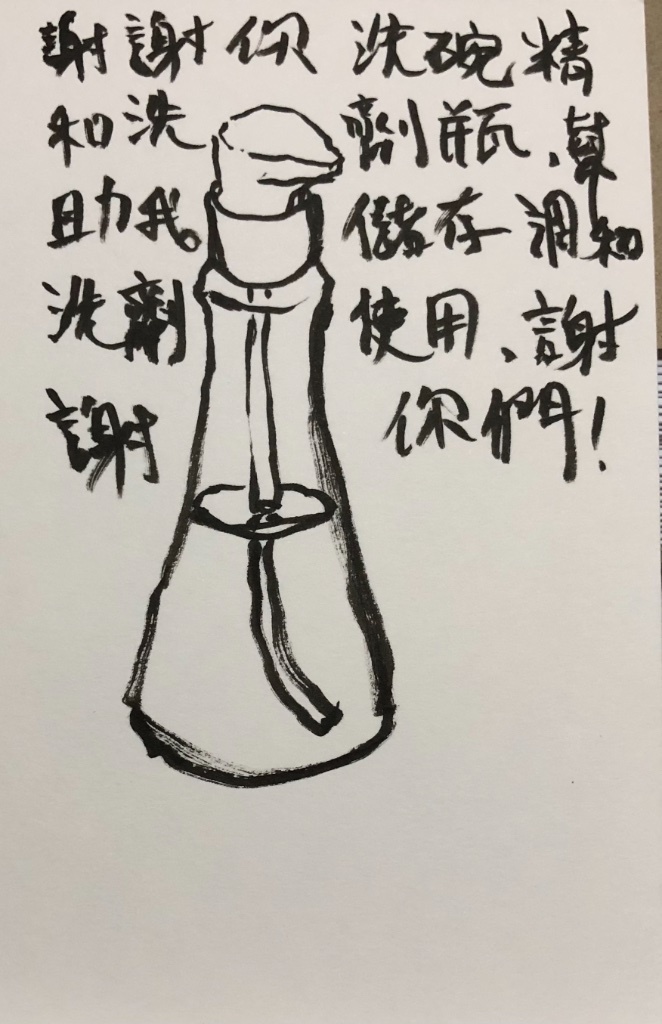 謝謝你 洗碗精
和洗 劑瓶、幫
助我。儲存 調和
洗劑 使用、謝
謝 你們!